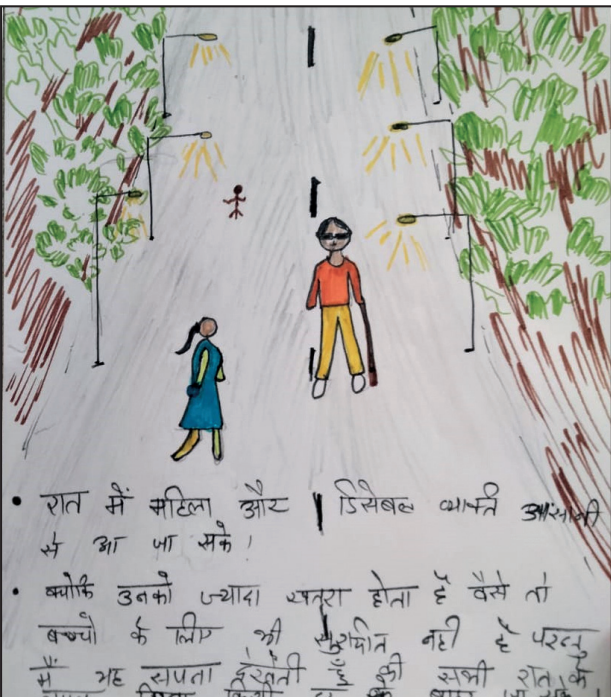 • रात में महिला और डिसेबल व्यक्ति आसानी
से आ जा सके।
• क्योंकि उनको ज्यादा खतरा होता है वैसे तो
बच्चो के लिए भी सुरक्षित नही है परन्तु
मैं यह सपना देखती हूँ की सभी रात के